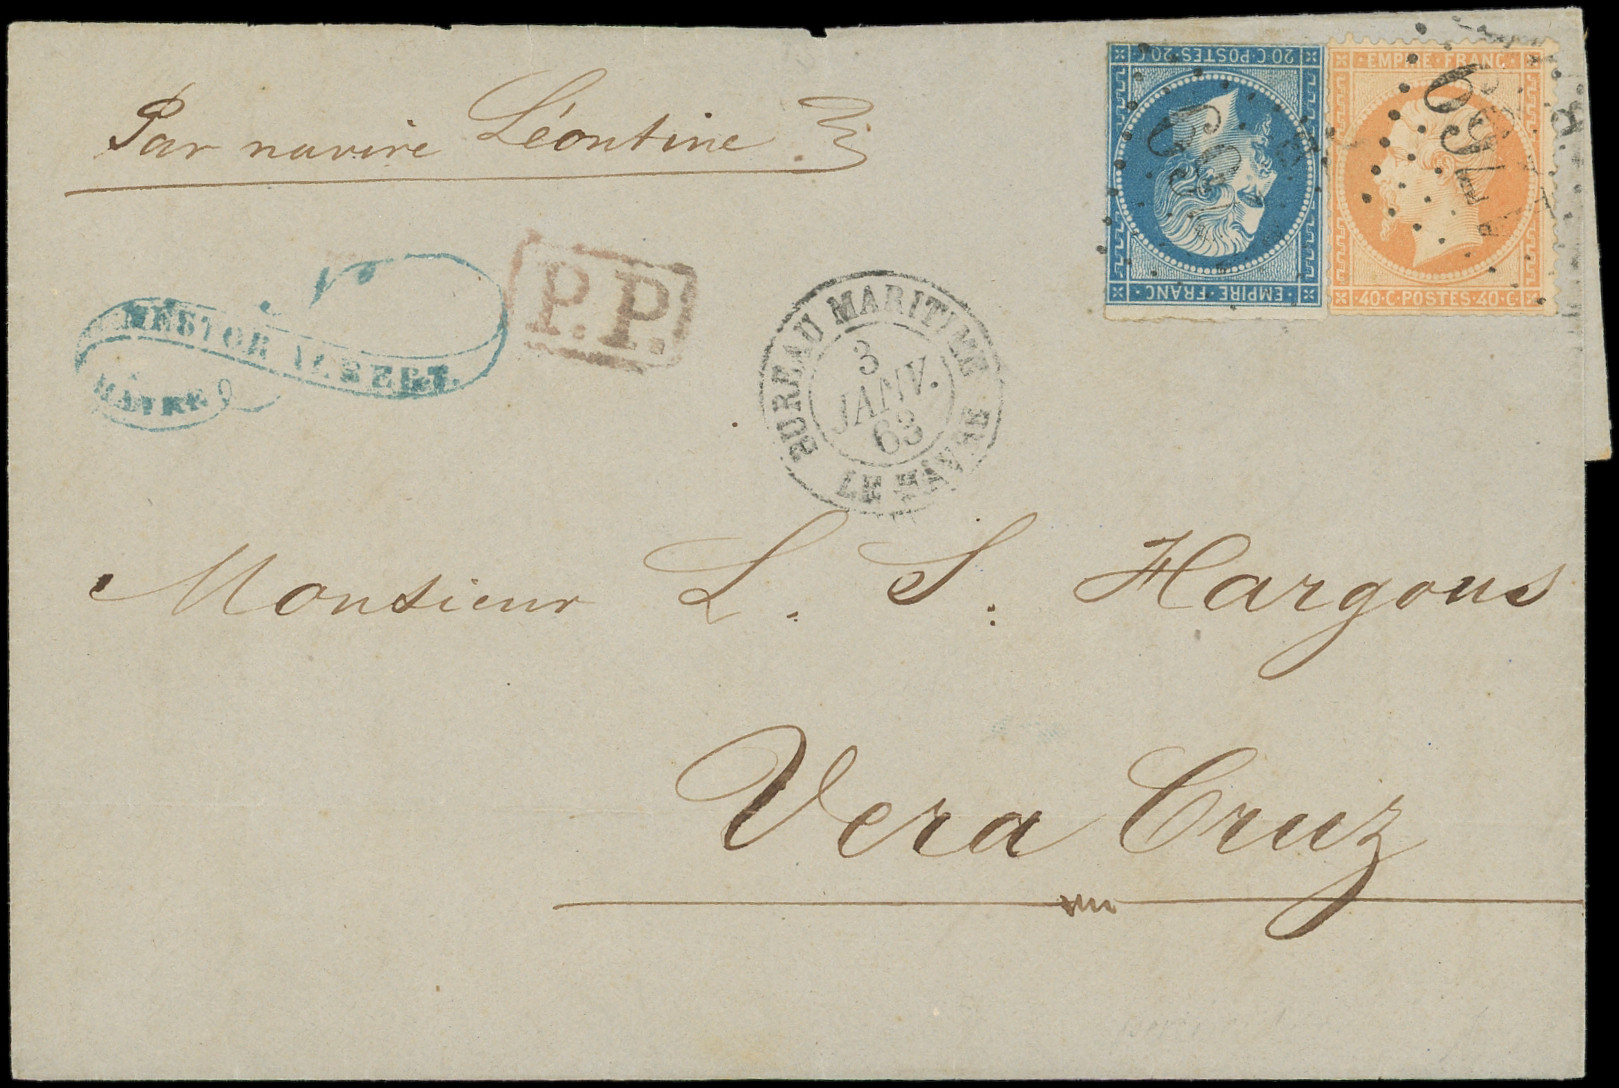 Par navire Léontine
20 C·POSTES·20 C
EMPIRE·FRANC
EMPIRE·FRANC
40·C·POSTES·40·C
1769
NESTOR ALBERT.
HAVRE
P.P.
BUREAU MARITIME
3
JANV.
63
LE HAVRE
Monsieur L. S. Hargous
Vera Cruz